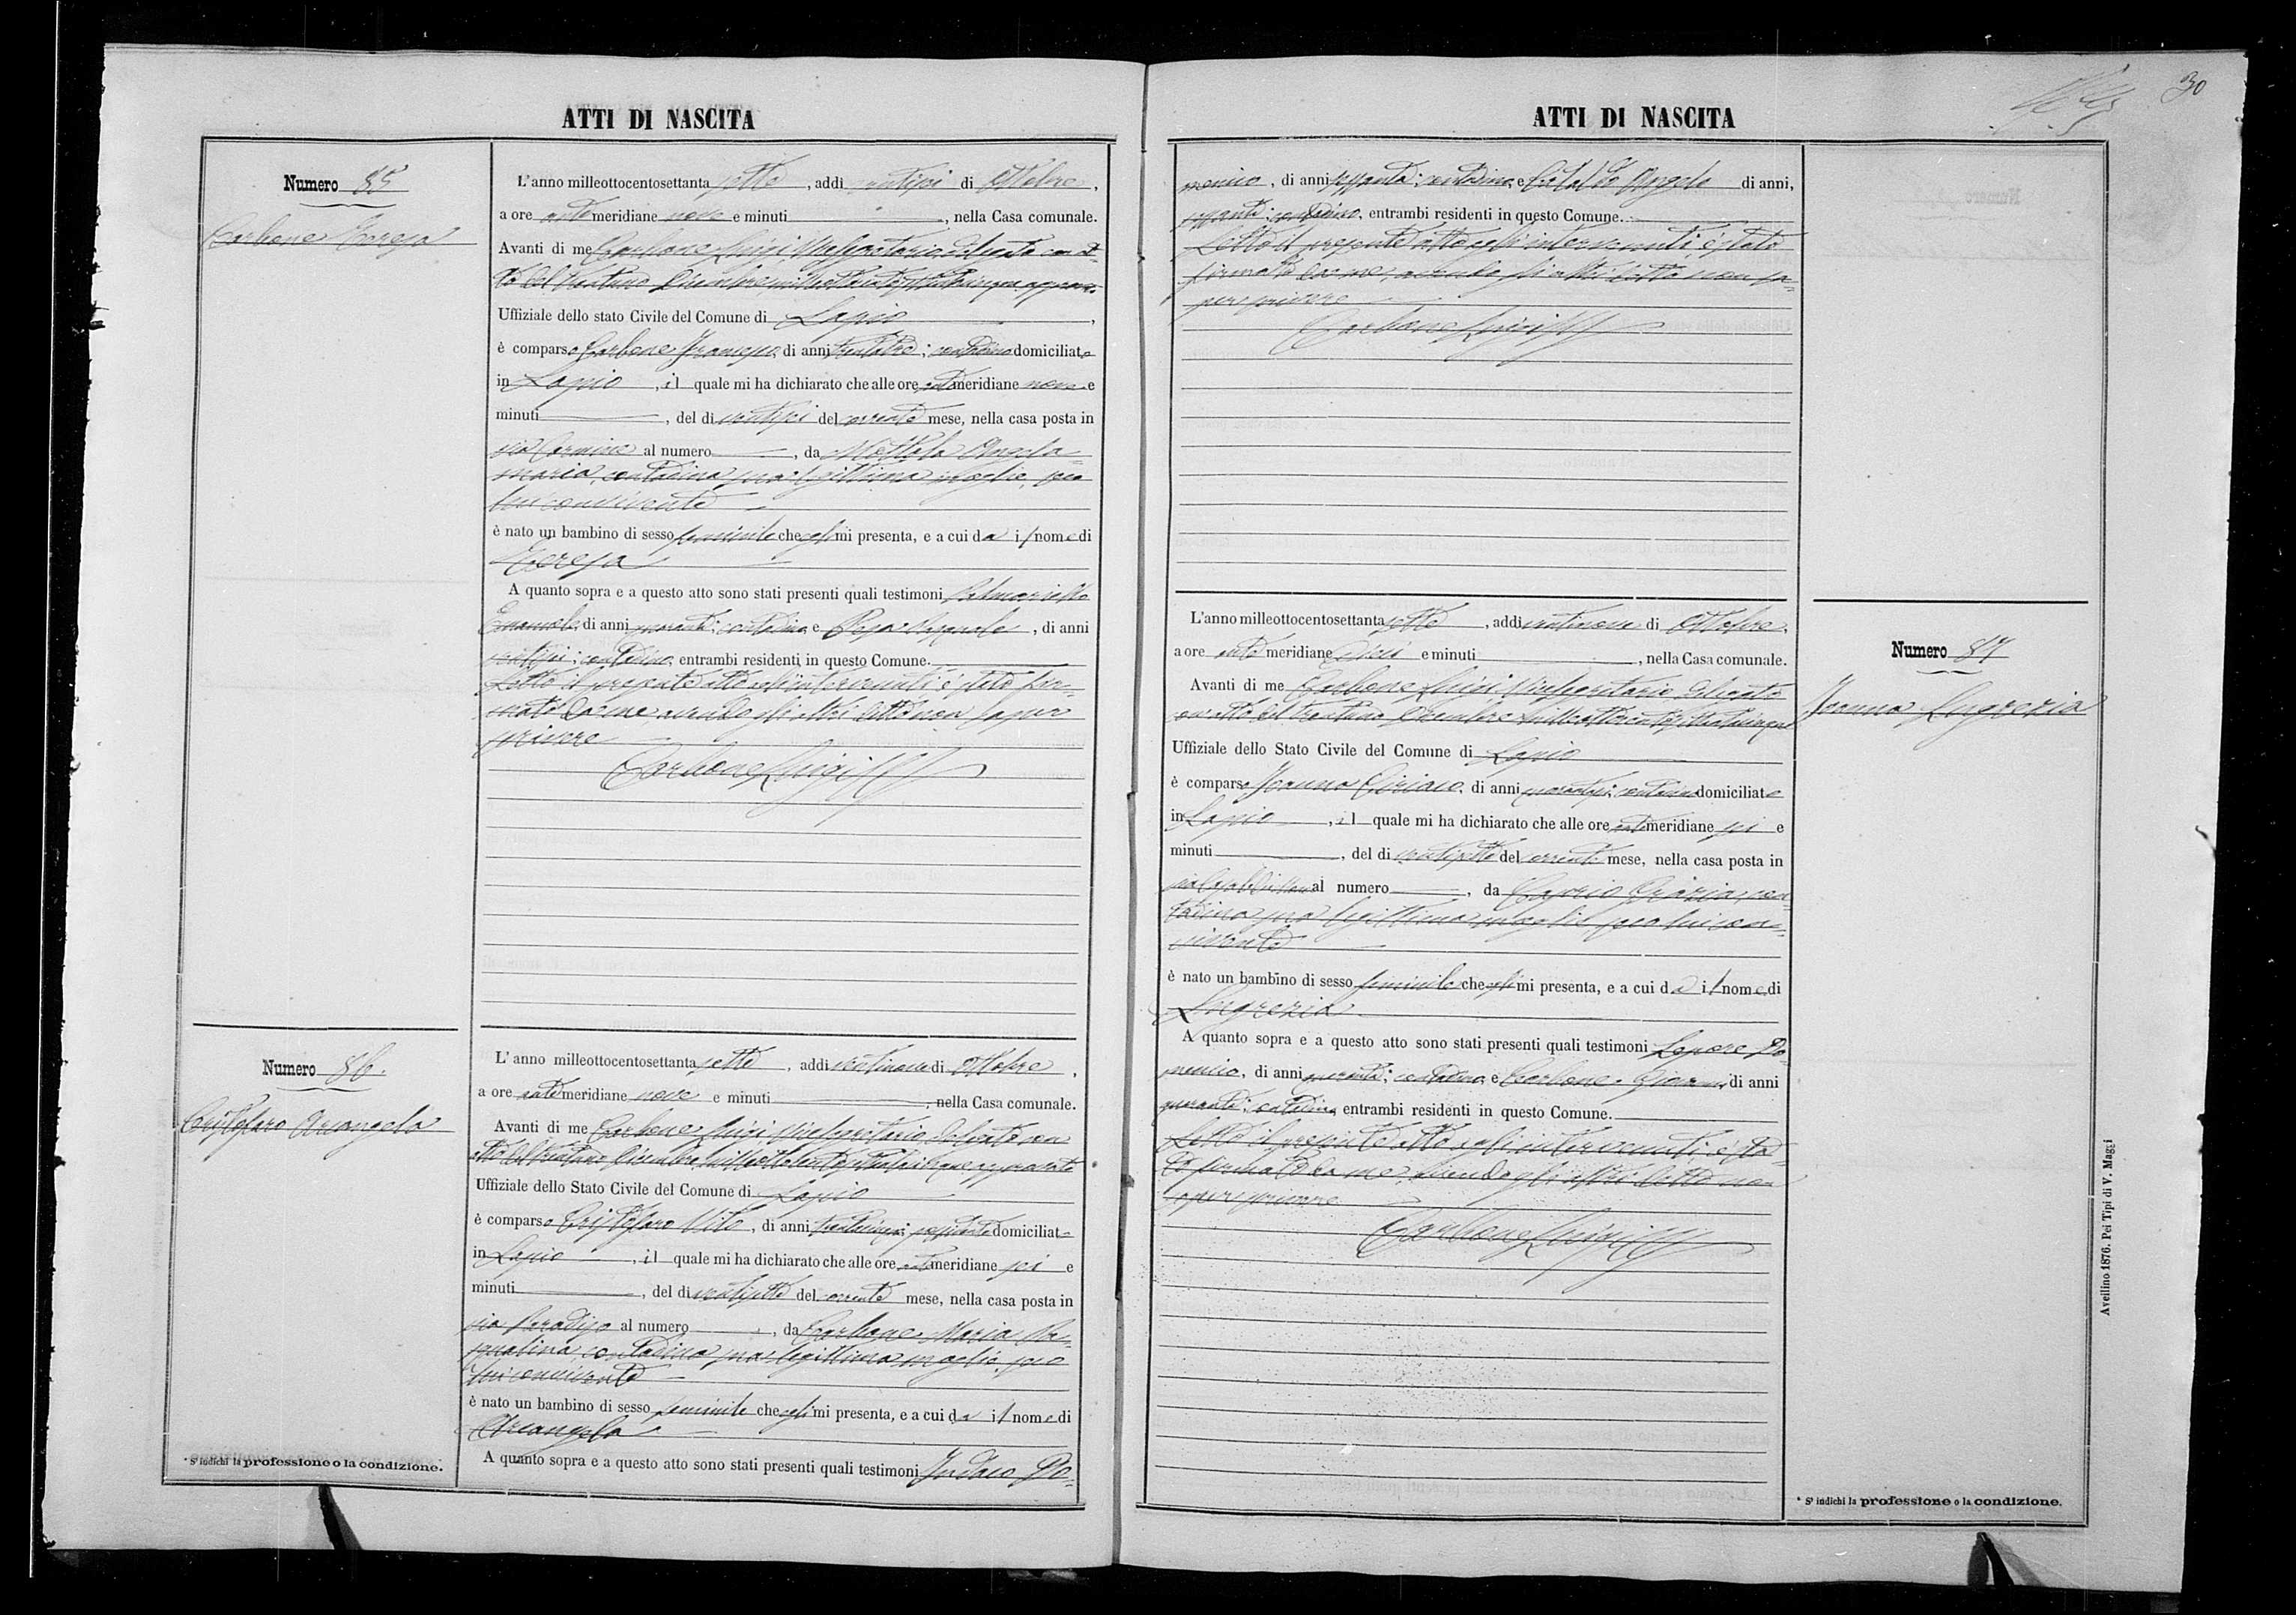 ATTI DI NASCITA
Numero 85
Carbone Teresa
L'anno milleottocentosettanta sette, addì ventisei di Ottobre,
a ore antemeridiane nove e minuti, nella Casa comunale.
Avanti di me Carbone Luigi Vicesegretario delegato con at=
to del trentuno Dicembre milleottocentosettantacinque approvato
Uffiziale dello stato Civile del Comune di Lapio,
è comparso Carbone Francesco, di anni trentatre; contadino domiciliato
in Lapio, il quale mi ha dichiarato che alle ore antemeridiane nove e
minuti, del dì ventisei del corrente mese, nella casa posta in
via Carmine al numero, da Mottola Angela=
maria, contadina sua legittima moglie, seco
lui convivente
è nato un bambino di sesso feminile che egli mi presenta, e a cui da il nome di
Teresa
A quanto sopra e a questo atto sono stati presenti quali testimoni
Emanuele, di anni quaranta; contadino, e Pasquale, di anni
ventisei; contadino, entrambi residenti in questo Comune.
Letto il presente atto agli intervenuti è stato fir=
mato da me avendo gli altri detto non saper
scrivere
Carbone Luigi
Numero 86.
Cristofaro Arcangela
L'anno milleottocentosettanta sette, addì ventinove di Ottobre,
a ore antemeridiane nove e minuti, nella Casa comunale.
Avanti di me Carbone Luigi Vicesegretario delegato con
atto del trentuno Dicembre milleottocentosettantacinque approvato
Uffiziale dello Stato Civile del Comune di Lapio
è comparso Cristofaro Vito, di anni trentacinque; possidente domiciliato
in Lapio, il quale mi ha dichiarato che alle ore antemeridiane sei e
minuti, del dì ventisette del corrente mese, nella casa posta in
via Paradiso al numero, da Carbone Maria Pa=
squalina, contadina sua legittima moglie, seco
lui convivente
è nato un bambino di sesso feminile che egli mi presenta, e a cui da il nome di
Arcangela
A quanto sopra e a questo atto sono stati presenti quali testimoni Iudaco Do=
* S'indichi la professione o la condizione.
ATTI DI NASCITA
30
menico, di anni sessanta; contadino, e Cataldo Angelo di anni,
sessanta; contadino, entrambi residenti in questo Comune.
Letto il presente atto agli intervenuti, è stato
firmato da me, avendo gli altri detto non sa=
pere scrivere
Carbone Luigi
Numero 87
Joanna Lugrezia
L'anno milleottocentosettanta sette, addì ventinove di Ottobre,
a ore antemeridiane dieci e minuti, nella Casa comunale.
Avanti di me Carbone Luigi Vicesegretario delegato
con atto del trentuno Dicembre milleottocentosettantacinque
Uffiziale dello Stato Civile del Comune di Lapio
è comparso Joanna Ciriaco, di anni quarantasei; contadino domiciliato
in Lapio, il quale mi ha dichiarato che alle ore antemeridiane sei e
minuti, del dì ventisette del corrente mese, nella casa posta in
al numero, da Caprio Grazia, con=
tadina sua legittima moglie, seco lui con=
vivente
è nato un bambino di sesso feminile che egli mi presenta, e a cui da il nome di
Lugrezia
A quanto sopra e a questo atto sono stati presenti quali testimoni Lepore Do
menico, di anni quaranta; contadino, e Carbone Giovanni, di anni
quaranta; contadino, entrambi residenti in questo Comune.
Letto il presente atto agli intervenuti, è sta=
to firmato da me, avendo gli altri detto non
sapere scrivere
Carbone Luigi
Avellino 1876. Pei Tipi di V. Maggi
* S'indichi la professione o la condizione.